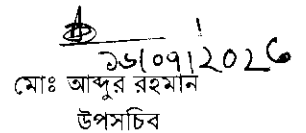 ১৬/০৭/২০২৬
মোঃ আব্দুর রহমান
উপসচিব